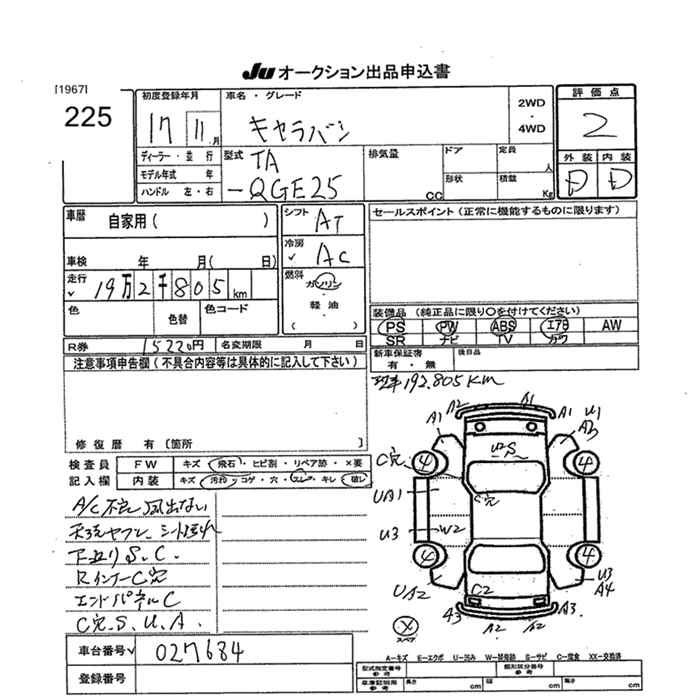 Ju オークション出品申込書
[1967]
225
初度登録年月
17 11 月
車名・グレード
キャラバン
2WD
・
4WD
評価点
2
外装 内装
D D
ディーラー・並行
モデル年式 年
ハンドル 左・右
型式 TA
－QGE25
排気量
CC
ドア
形状
定員
人
積載
Kg
車歴
自家用( )
シフト AT
冷房 AC
セールスポイント (正常に機能するものに限ります)
車検 年 月( 日)
走行 19万2千805km
燃料
ガソリン
・
軽油
・
( )
色
色替
色コード
装備品 (純正品に限り○を付けてください)
PS PW ABS エアB AW
SR ナビ TV カワ
R券 15220円
名変期限 月 日
新車保証書
有・無
後日品
注意事項申告欄(不具合内容等は具体的に記入して下さい)
192.805Km
修復歴 有〔箇所 〕
検査員
記入欄
FW キズ・飛石・ヒビ割・リペア跡・×要
内装 キズ・汚れ・コゲ・穴・スレ・キレ・破レ
A/C不良 風出ない
下廻りS.C.
RインナーC穴
エンドパネルC
C穴.S.U.A.
A1 A2 A1 A1 U1
A3
C穴 4 U2S 4
UA1 C穴
U3 W2
4 4
UA2 C2 U3
A4
A3 A2 A2 A3
×
スペア
A－キズ E－エクボ U－凹み W－補修跡 S－サビ C－腐食 XX－交換済
車台番号 027684
登録番号
型式指定番号
参考
類別区分番号
参考
車庫証明用
参考
長さ cm 幅 cm 高さ cm